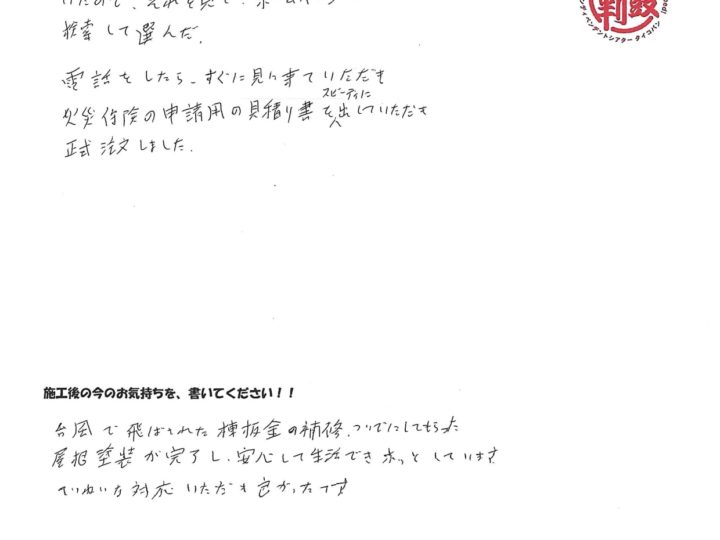 いたので、それを見て、ホームページ
検索して選んだ。
電話をしたら、すぐに見に来ていただき
スピーディに
火災保険の申請用の見積り書を出していただき
正式注文しました。
施工後の今のお気持ちを、書いてください！！
台風で飛ばされた棟板金の補修、ついでにしてもらった
屋根塗装が完了し、安心して生活できホッとしています
ていねいな対応いただき良かったです